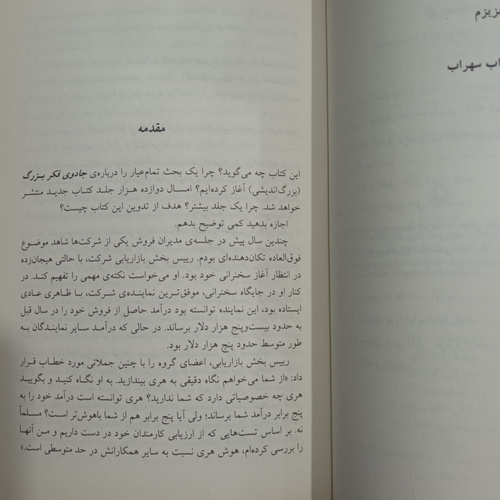 زیزم
اب سهراب
مقدمه
این کتاب چه می‌گوید؟ چرا یک بحث تمام‌عیار را درباره‌ی جادوی فکر بزرگ
(بزرگ‌اندیشی) آغاز کرده‌ایم؟ امسال دوازده هزار جلد کتاب جدید منتشر
خواهد شد. چرا یک جلد بیشتر؟ هدف از تدوین این کتاب چیست؟
اجازه بدهید کمی توضیح بدهم.
چندین سال پیش در جلسه‌ی مدیران فروش یکی از شرکت‌ها شاهد موضوع
فوق‌العاده تکان‌دهنده‌ای بودم. رییس بخش بازاریابی شرکت، با حالتی هیجان‌زده
در انتظار آغاز سخنرانی خود بود. او می‌خواست نکته‌ی مهمی را تفهیم کند. در
کنار او در جایگاه سخنرانی، موفق‌ترین نماینده‌ی شرکت، با ظاهری عادی
ایستاده بود، این نماینده توانسته بود درآمد حاصل از فروش خود را در سال قبل
به حدود بیست‌وپنج هزار دلار برساند. در حالی که درآمد سایر نمایندگان به
طور متوسط حدود پنج هزار دلار بود.
رییس بخش بازاریابی، اعضای گروه را با چنین جملاتی مورد خطاب قرار
داد: «از شما می‌خواهم نگاه دقیقی به هری بیندازید. به او نگاه کنید و بگویید
هری چه خصوصیاتی دارد که شما ندارید؟ هری توانسته است درآمد خود را به
پنج برابر درآمد شما برساند؛ ولی آیا پنج برابر هم از شما باهوش‌تر است؟ مسلماً
نه. بر اساس تست‌هایی که از ارزیابی کارمندان خود در دست داریم و من آنها
را بررسی کرده‌ام، هوش هری نسبت به سایر همکارانش در حد متوسطی است.»